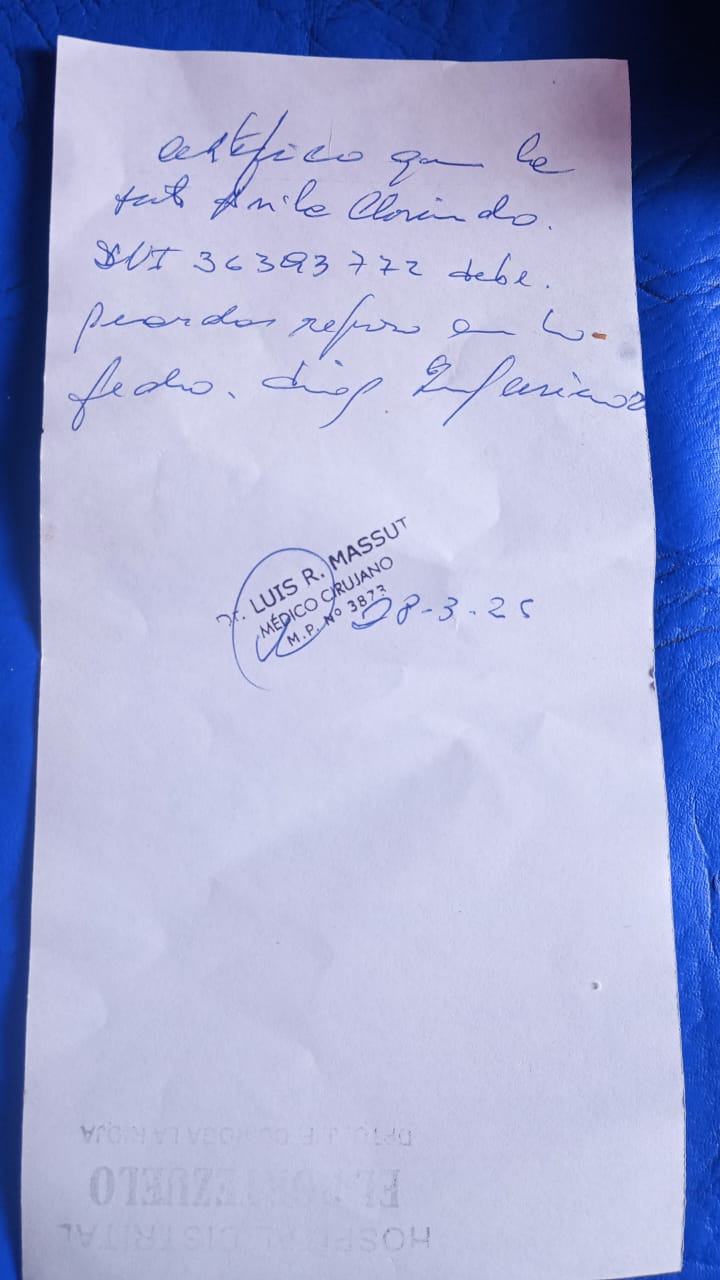 certifico que la
Avila Clorindo.
DNI 36393772 debe.
guardar reposo en la
fecha. diag
Dr. LUIS R. MASSUT
MÉDICO CIRUJANO
M.P. Nº 3873
28-3-25
DPTO. J. F. QUIROGA LA RIOJA
EL PORTEZUELO
HOSPITAL DISTRITAL